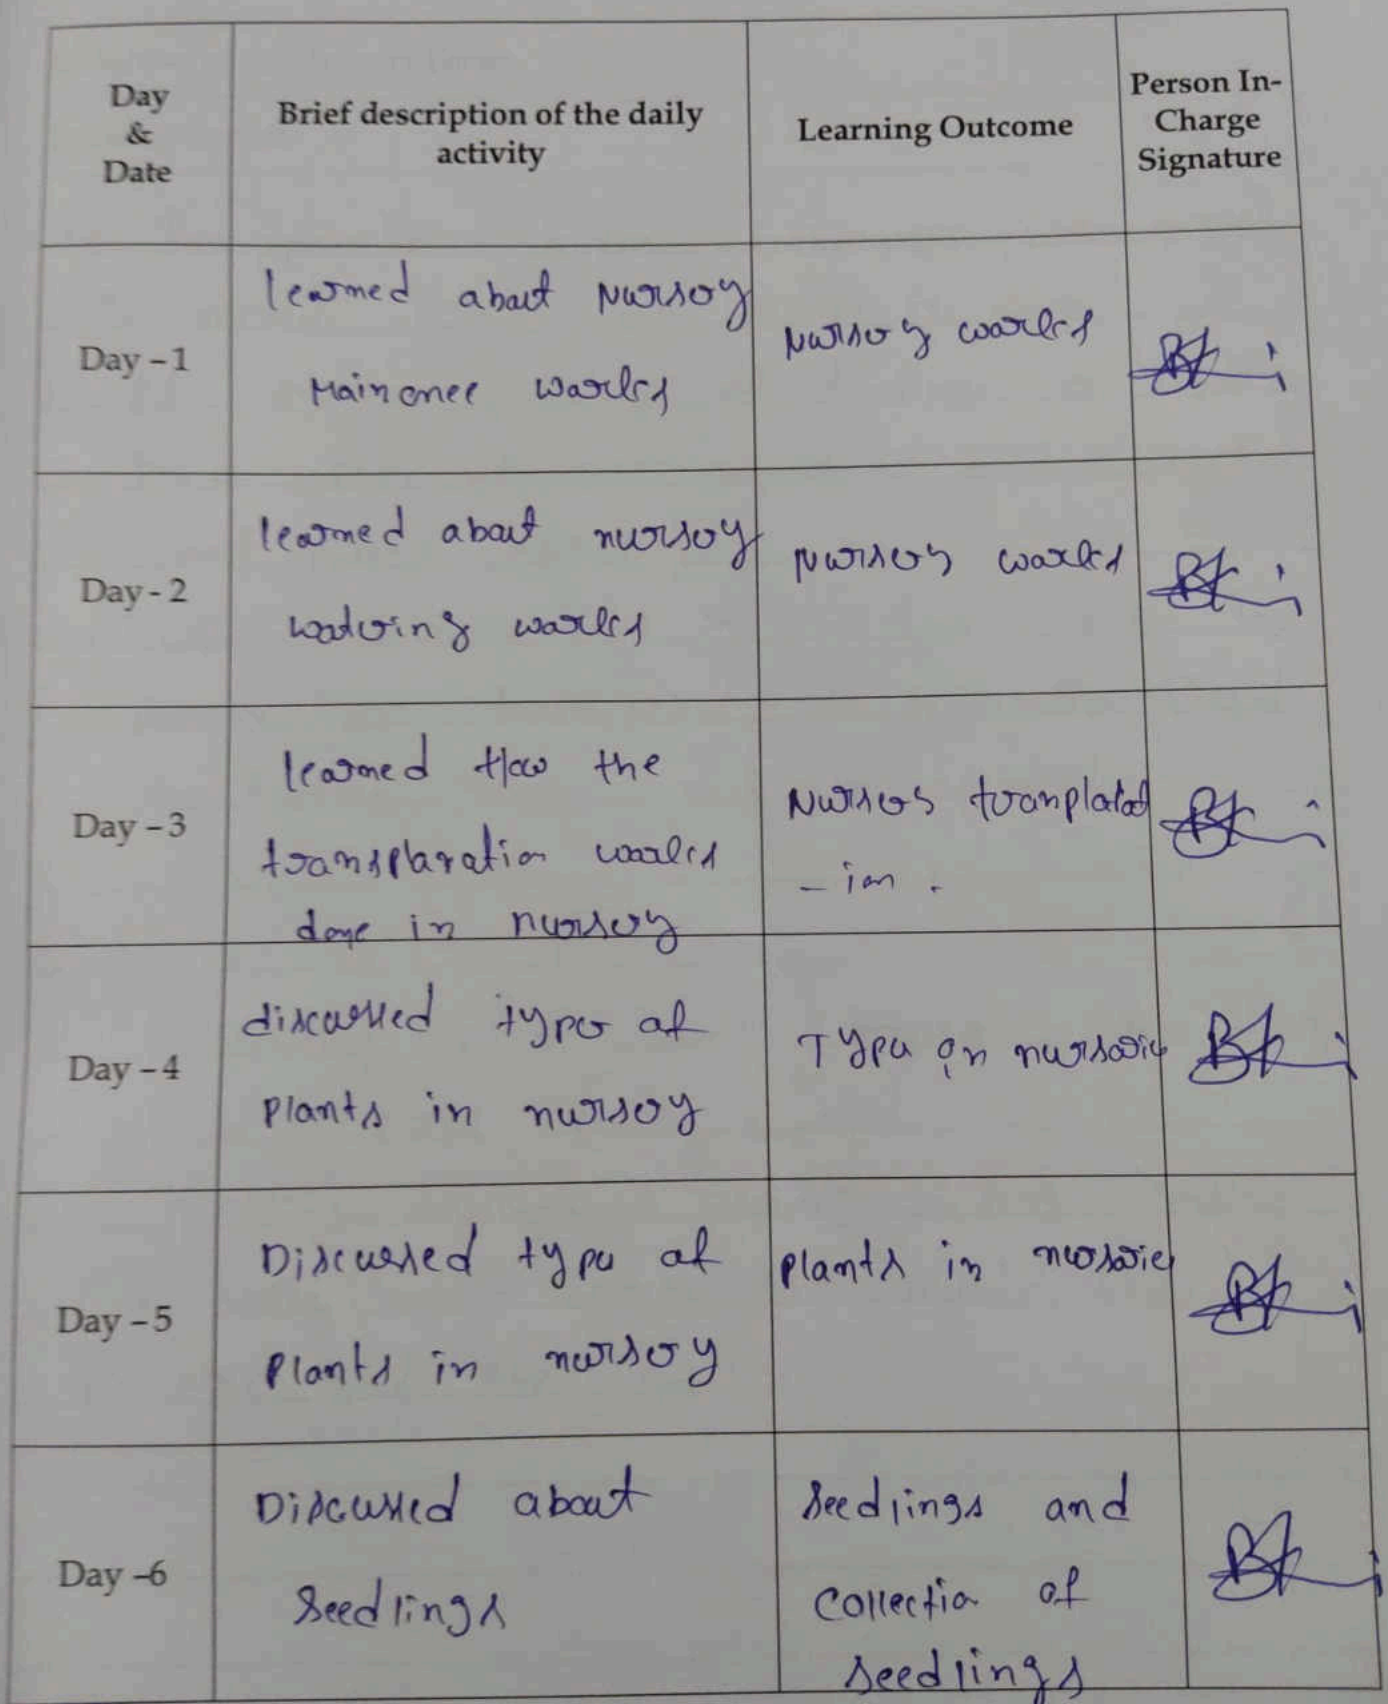 Day
&
Date
Brief description of the daily
activity
Learning Outcome
Person In-
Charge
Signature
Day - 1
learned about Nursoy
Mainonee works
Nursoy works
Day - 2
learned about nursoy
watering works
Nursery works
Day - 3
learned How the
transplaration works
done in nursery
Nursery tranplatat
- ion .
Day - 4
discussed type of
plants in nursoy
Type in nursarie
Day - 5
Discussed type of
plants in nursery
plants in nursarie
Day -6
Discussed about
seedlings
seedlings and
collectio of
seedlings